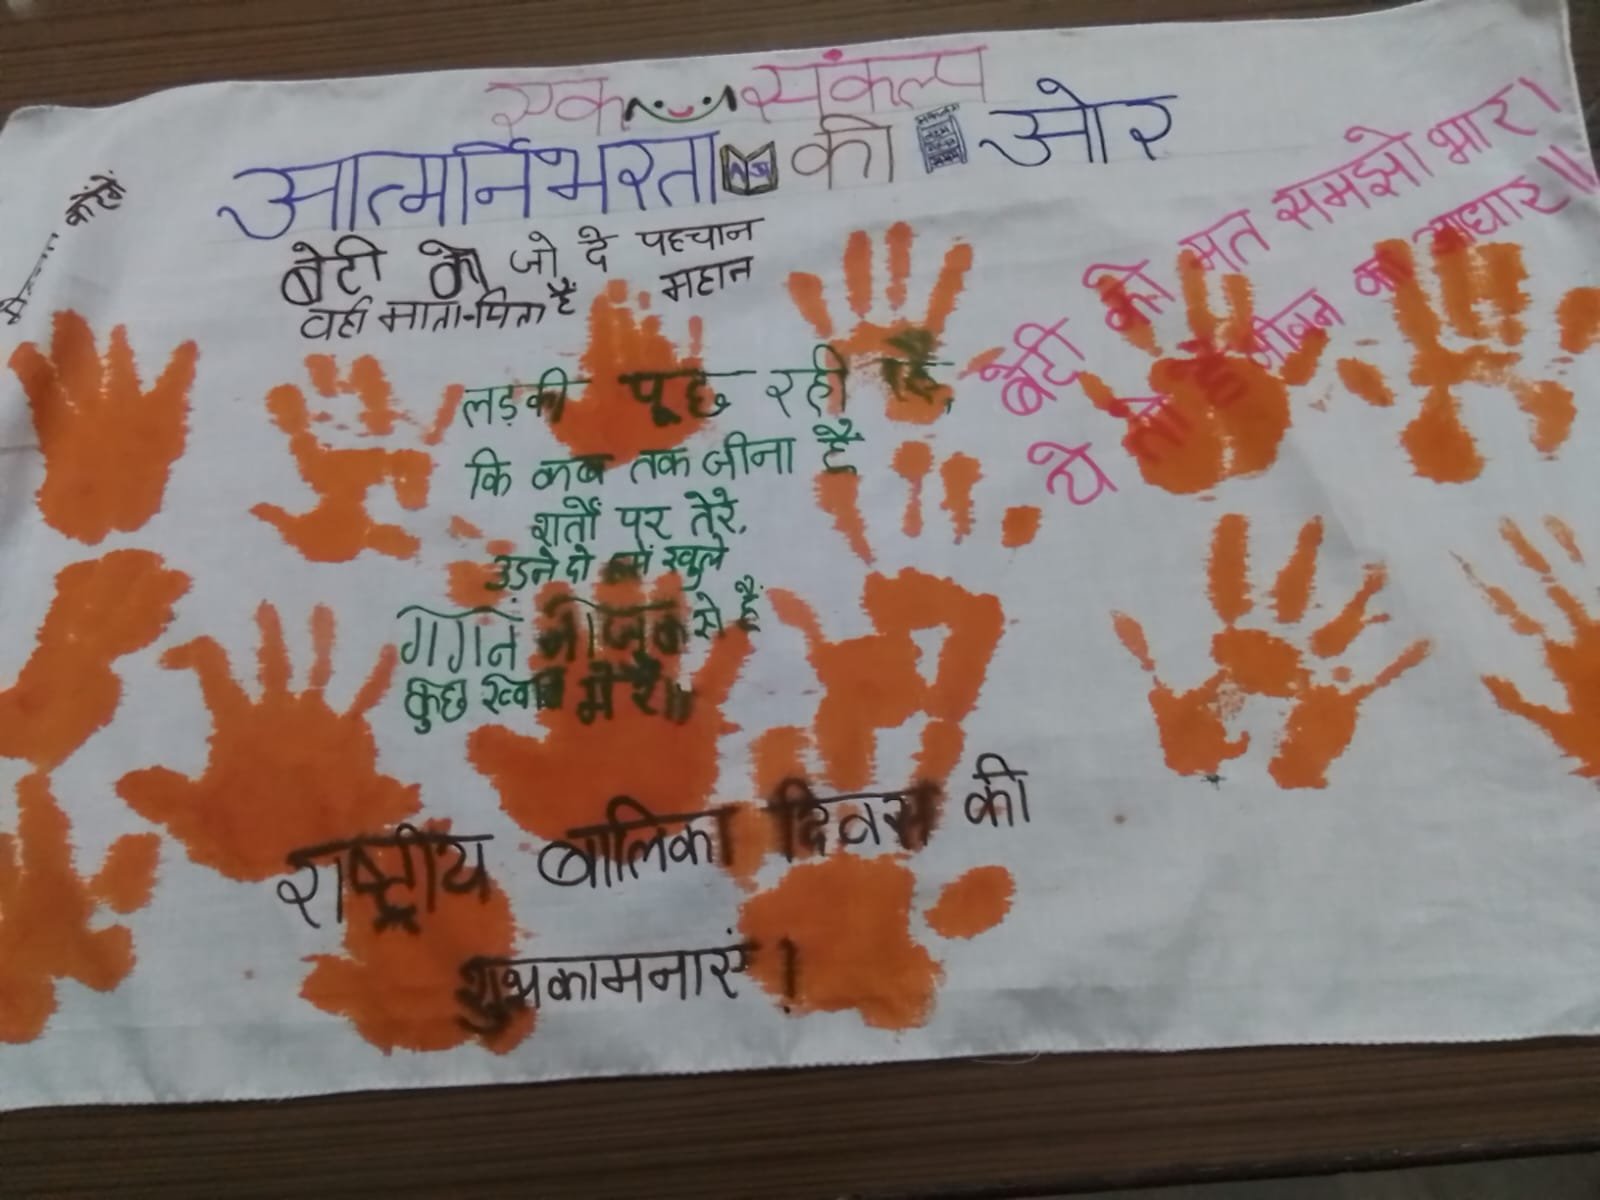 एक संकल्प
आत्मर्निभरता की ओर
बेटी को जो दे पहचान
वही माता-पिता हैं महान
बेटी को मत समझो भार।
ये तो है जीवन का आधार॥
लड़की पूछ रही है,
कि कब तक जीना है
शर्तों पर तेरे,
उड़ने दो हमें खुले
गगन में नाजुक से हैं
कुछ ख्वाब मेरे॥
राष्ट्रीय बालिका दिवस की
शुभकामनाएं!